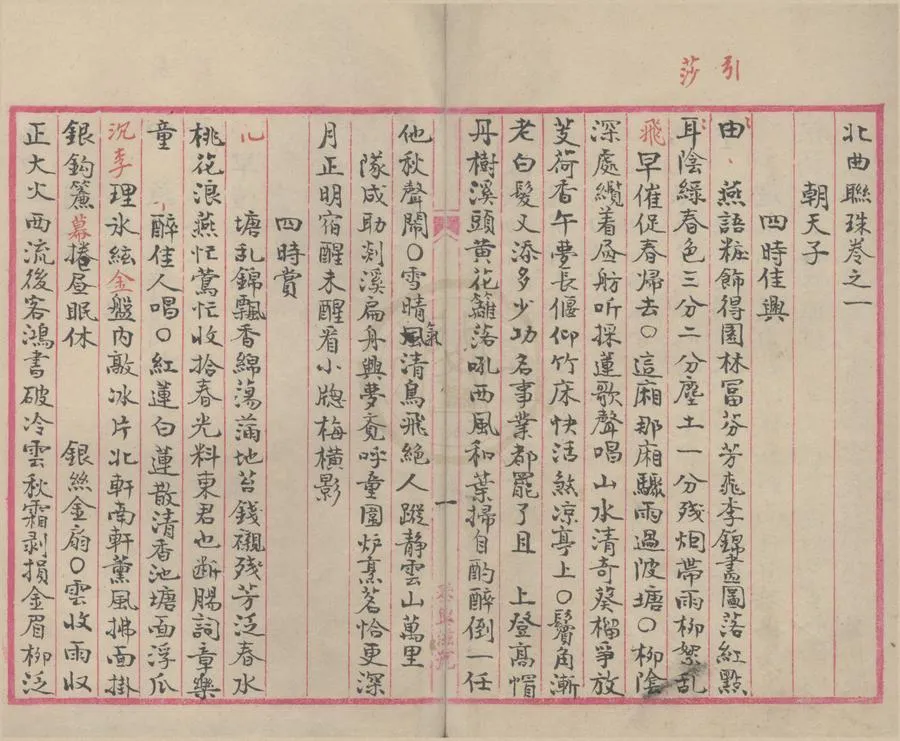 引
莎
北曲聯珠卷之一
朝天子
四時佳興
由、燕語粧飾得園林富芬芳桃李錦畫圖落紅點
耳陰綠春色三分二分塵土一分残烟帶雨柳絮乱
飛早催促春帰去〇這廂那廂驟雨過陂塘〇柳陰
深處纜着昼舫听採蓮歌聲唱山水清奇葵榴爭放
芰荷香午夢長偃仰竹床快活煞凉亭上〇鬢角漸
老白髮又添多少功名事業都罷了且 上登高帽
丹樹溪頭黃花籬落吼西風和葉掃自酌醉倒一任
他秋聲鬧〇雪晴風氣清鳥飛絕人蹤靜雲山萬里
隊成助剡溪扁舟興夢竟呼童圍炉烹茗恰更深
月正明宿醒未醒看小牕梅橫影
四時賞
心 塘乱錦飄香綿蕩蒲地苔錢襯残芳泛春水
桃花浪燕忙鶯忙收拾春光料東君也断腸詞章樂
童 醉佳人唱〇紅蓮白蓮散清香池塘面浮瓜
沉李理氷絃金盤內敲冰片北軒南軒薰風拂面掛
銀鈎簾幕捲昼眠休 銀絲金扇〇雲收雨収
正大火西流後客鴻書破冷雲秋霜剥損金眉柳泛
一